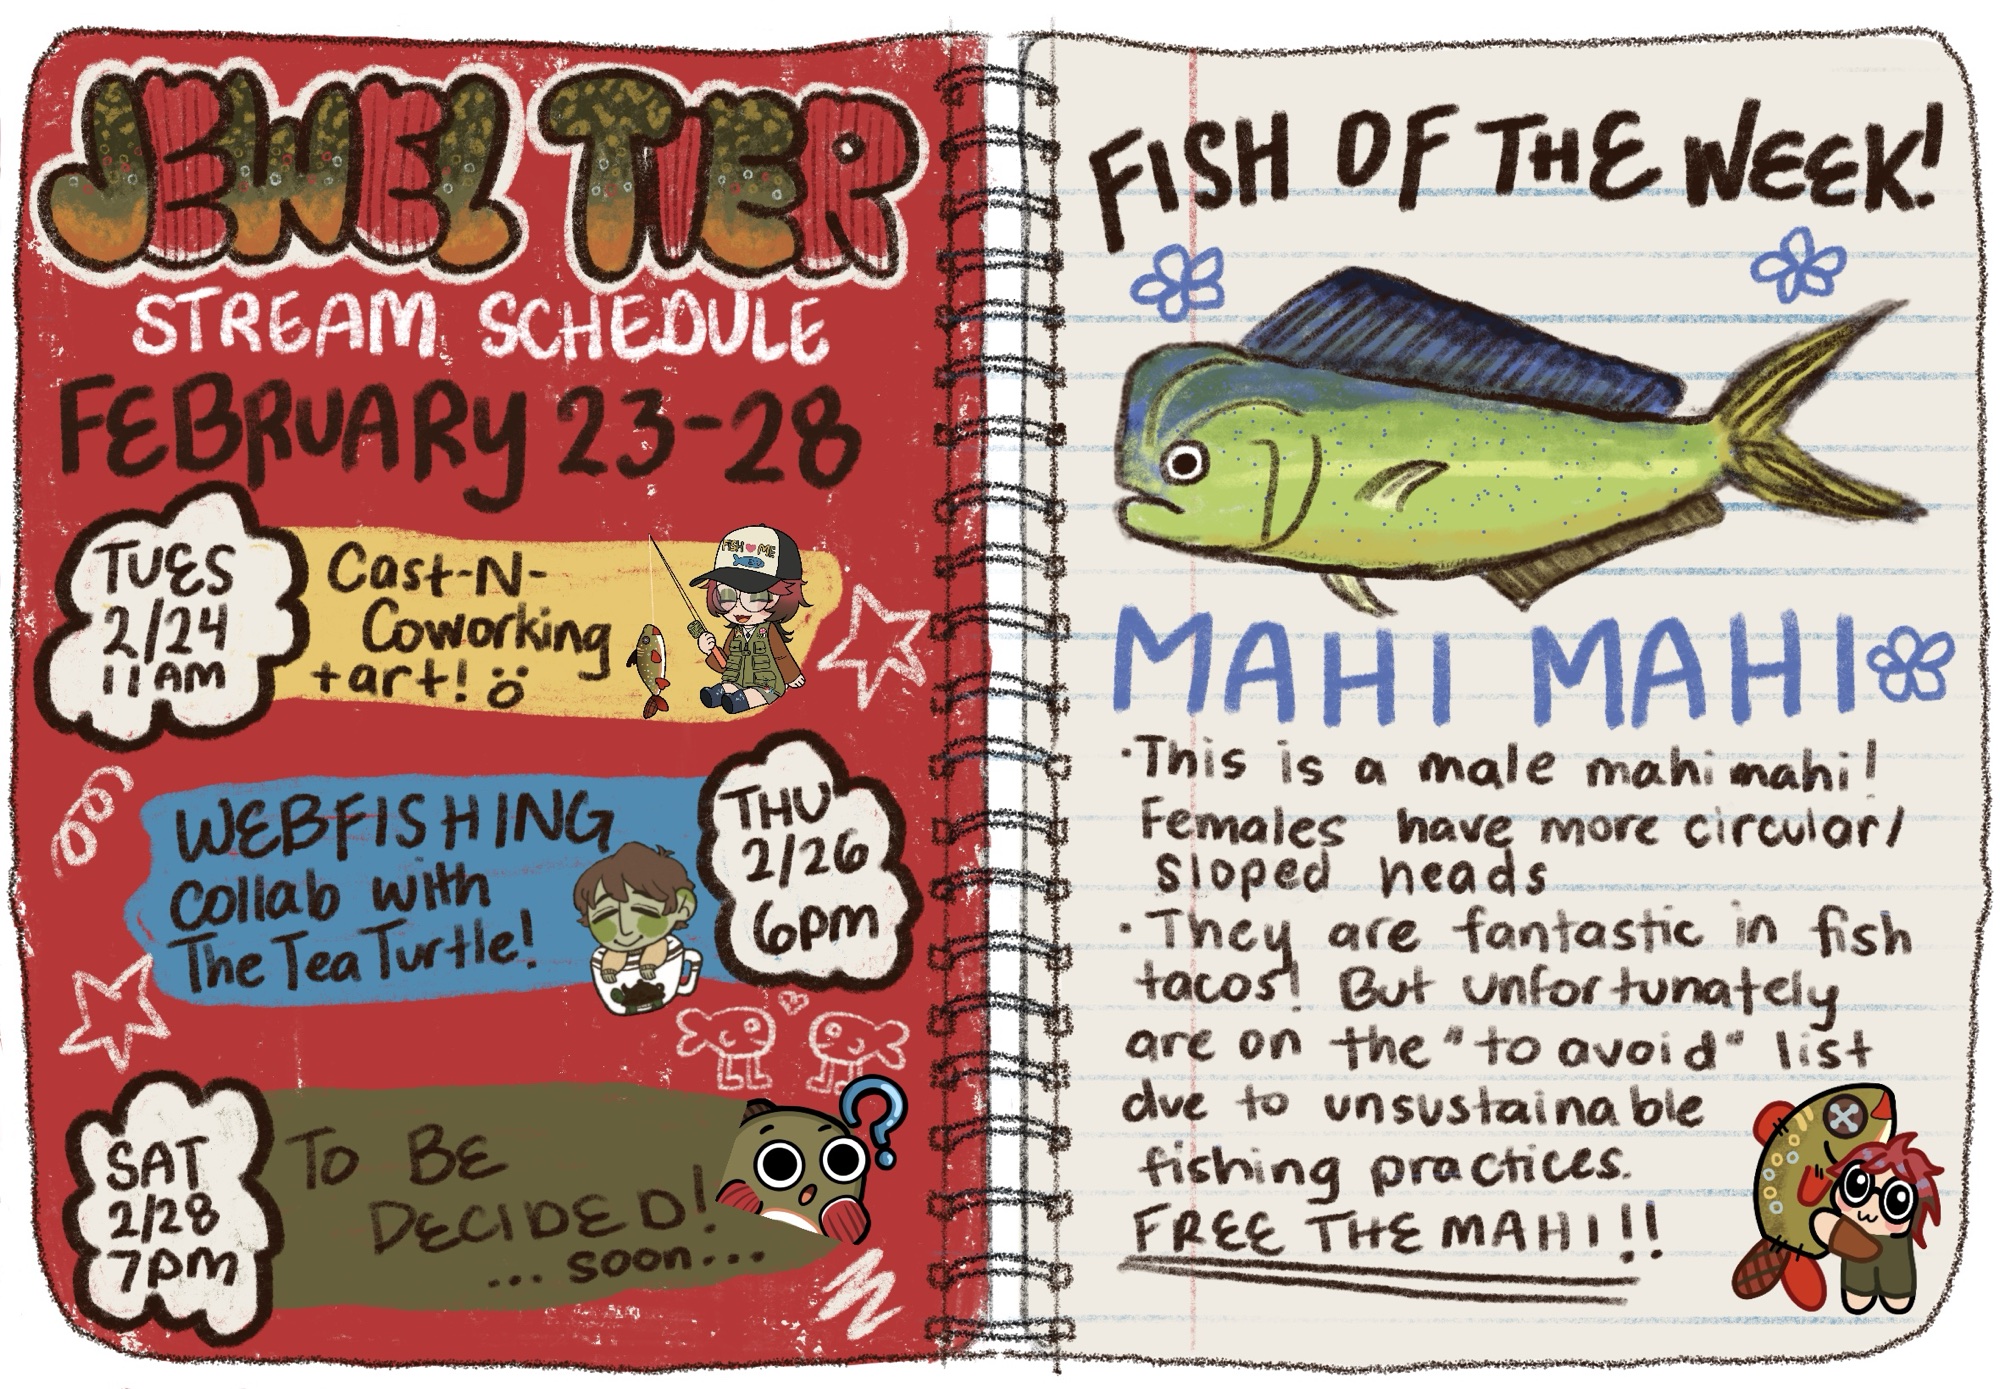 JEWEL TIER
STREAM SCHEDULE
FEBRUARY 23-28
TUES
2/24
11 AM
Cast-N-
Coworking
+art! ö
FISH ♥ ME
WEBFISHING
collab with
The Tea Turtle!
THU
2/26
6pm
SAT
2/28
7pm
TO BE
DECIDED!
... soon...
?
FISH OF THE WEEK!
MAHI MAHI
·This is a male mahi mahi!
Females have more circular/
sloped heads
·They are fantastic in fish
tacos! But unfortunately
are on the "to avoid" list
due to unsustainable
fishing practices.
FREE THE MAHI!!